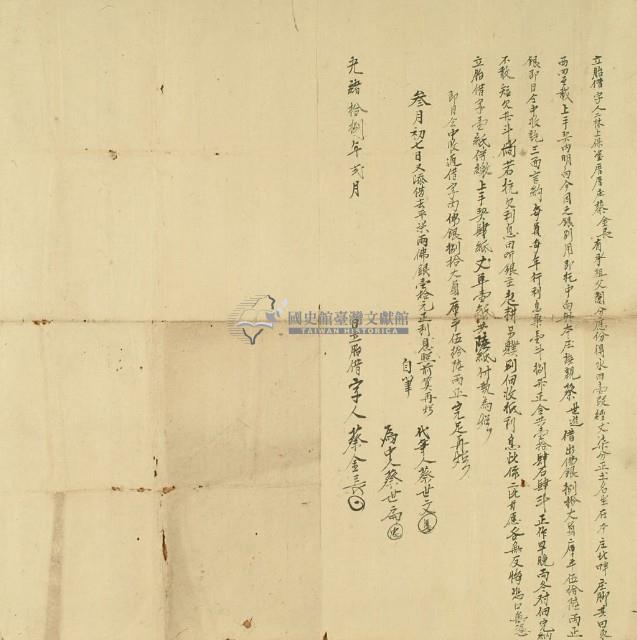 立胎借字人二林上保挖厝庄蔡金長有承祖父鬮分應份得水田壹段
西四至載上手契內明白今因乏銀別用即托中向與本庄親蔡世遊借出佛銀捌拾大員庫平伍拾陸兩正
銀即日仝中收訖三面言約每員每年行利息粟壹斗捌升正合共壹拾肆石肆斗正作早晚兩冬付佃完納
不敢短欠升斗倘若抗欠利息田听銀主起耕另贌別佃收抵利息此係二比甘愿各無反悔恐口無憑
立胎借字壹紙併繳上手契肆紙丈單壹紙共陸紙付執為炤
即日仝中收過借字內佛銀捌拾大員庫平伍拾陸兩正完足再炤
叁月初七日又添借去平柒兩佛銀壹拾元正利息照前算再炤
自筆
代筆人蔡世文
為中人蔡世
日立胎借字人蔡金長
光緒拾捌年弍月
國史館臺灣文獻館
TAIWAN HISTORICA